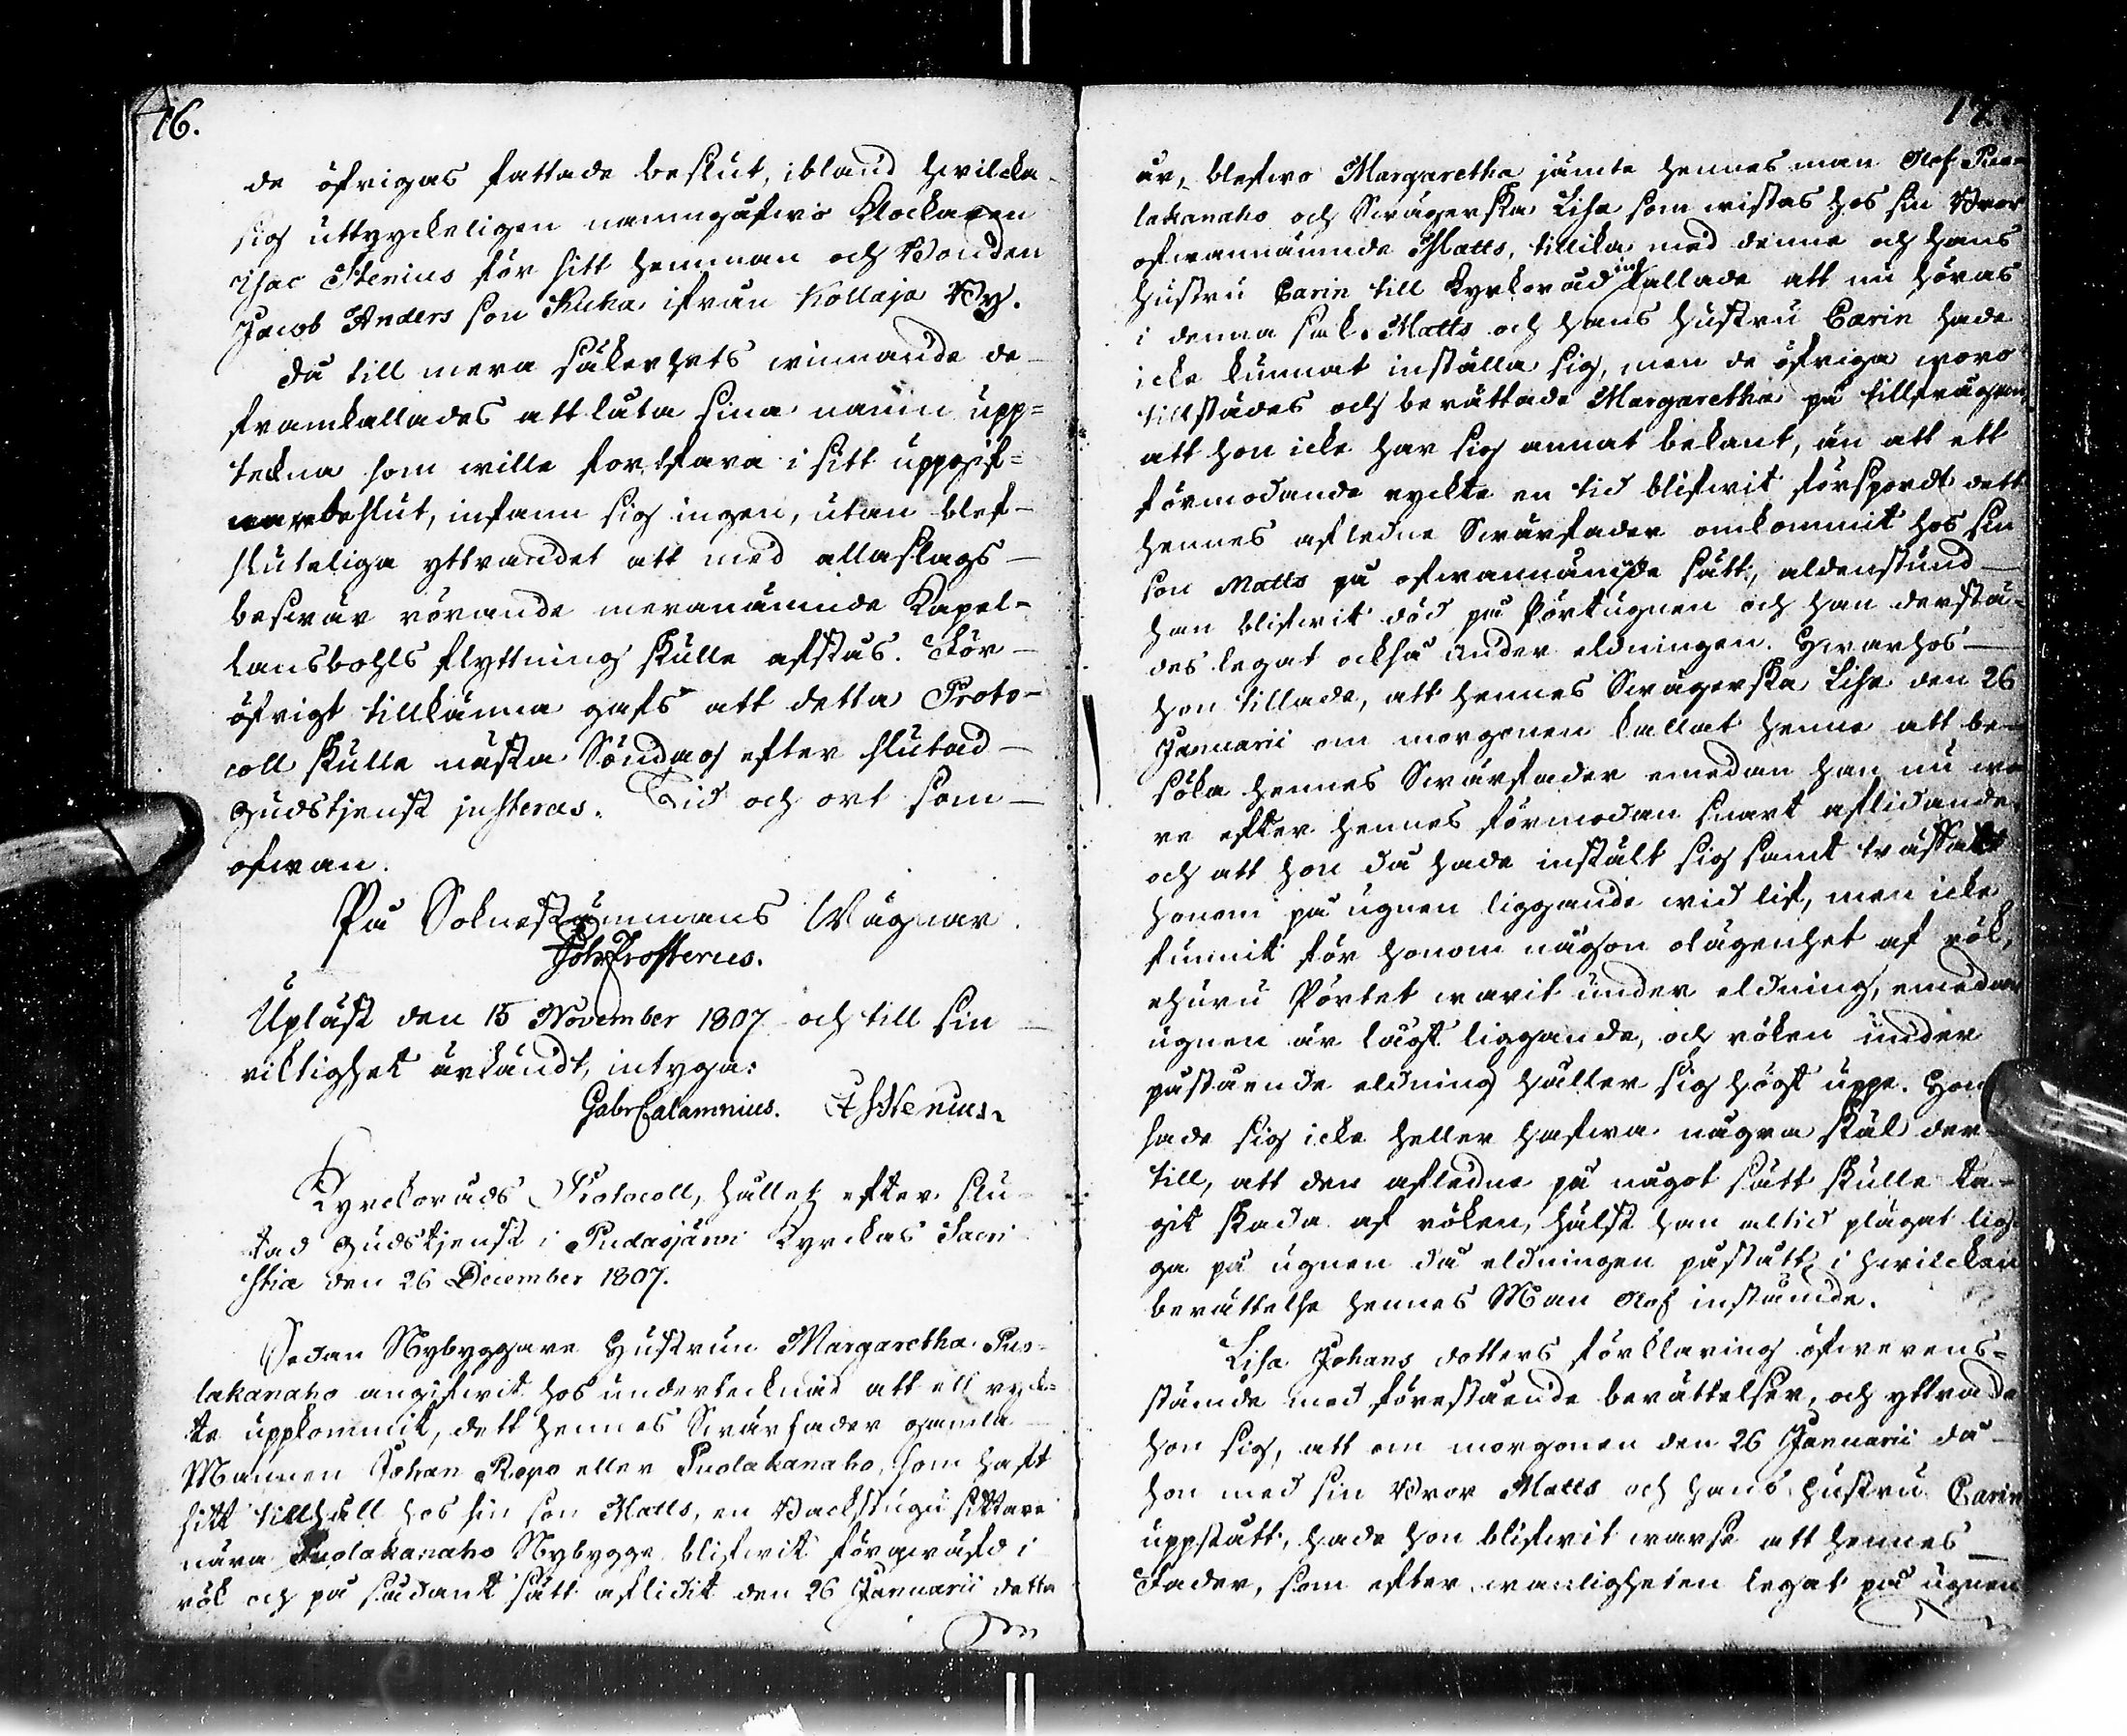 16.
de öfrigas fattade beslut, ibland hvilcka
sig uttryckeligen namngåfwo Klockaren
Isac Stenius för sitt hemman och Bonden
Jacob Anders son Kuha ifrån Kollaja By.
Då till mera säkerhets winnande de
framkallades att låta sina namn upp=
tekna som wille fordfara i sitt uppgif=
beslut, infann sig ingen, utan blef
sluteliga yttrandet att med allaslags
beswär rörande meranämnde Kapel=
lansbohls flyttning skulle afstås. För
öfrigt tillkänna gafs att detta Proto-
coll skulle nästa Söndag efter slutad
Gudstjenst justeras. Tid och ort som
ofwan.
På Soknestämmans Wägnar
Joh Frosterus.
Upläst den 15 November 1807 och till sin
riktighet ärkändt, intyga:
Gabr Calamnius. Stenius.
Kyrckoråds Protocoll, hållet efter slu-
tad Gudstjenst i Pudasjärvi Kyrckas Sacri
stia den 26 December 1807.
Sedan Nybyggare Hustrun Margaretha Puo-
lakanaho angifwit hos undertecknad att ett ryck=
te uppkommit, dett hennes Swärfader gamla
Mannen Johan Repo eller Puolakanaho, som haft
sitt tillhåll hos sin son Matts, en Backstugu sittare
nära Puolakanaho Nybygge blifwit förqwäfd i
rök och på sådant sätt aflidit den 26 Januarii detta
17.
år, blefwo Margaretha jämte hennes man Olof Puo-
lakanaho och Swägerska Lisa som wistas hos sin Bror
ofwannämnde Matts, tillika med denne och hans
hustru Carin till Kyrkoråd inkallade att nu höras
i denna sak. Matts och hans hustru Carin hade
icke kunnat inställa sig, men de öfriga woro
tillstädes och berättade Margaretha på tillfrågan,
att hon icke har sig annat bekant, än att ett
förmodande ryckte en tid blifwit försport dett
hennes afledne Swärfader omkommit hos sin
son Matts på ofwannämnde sätt, aldenstund
han blifwit död på Pörtugnen och han derstä-
des legat också under eldningen. Hwarhos
hon tillade, att hennes Swägerska Lisa den 26
Januarii om morgonen kallat henne att be-
söka hennes Swärfader emedan han nu wo
re efter hennes förmodan snart aflidande
och att hon då hade instält sig samt träffatt
honom på ugnen liggande wid lif, men icke
funnit för honom någon olägenhet af rök,
ehuru Pörtet warit under eldning, emedan
ugnen är lågt liggande, och röken under
påstående eldning håller sig högt uppe. Hon
sade sig icke heller hafwa några skäl der
till, att den afledne på något sätt skulle ta-
git skada af röken, hälst han altid plägat lig-
ga på ugnen då eldningen påstått, i hwilcken
berättelse hennes Man Olof instämde.
Lisa Johans dotters förklaring öfwerens-
stämde med förestående berättelser, och yttrade
hon sig, att om morgonen den 26 Januarii då
hon med sin Bror Matts och hans hustru Carin
uppstått, hade hon blifwit warse att hennes
Fader, som efter wanligheten legat på ugnen